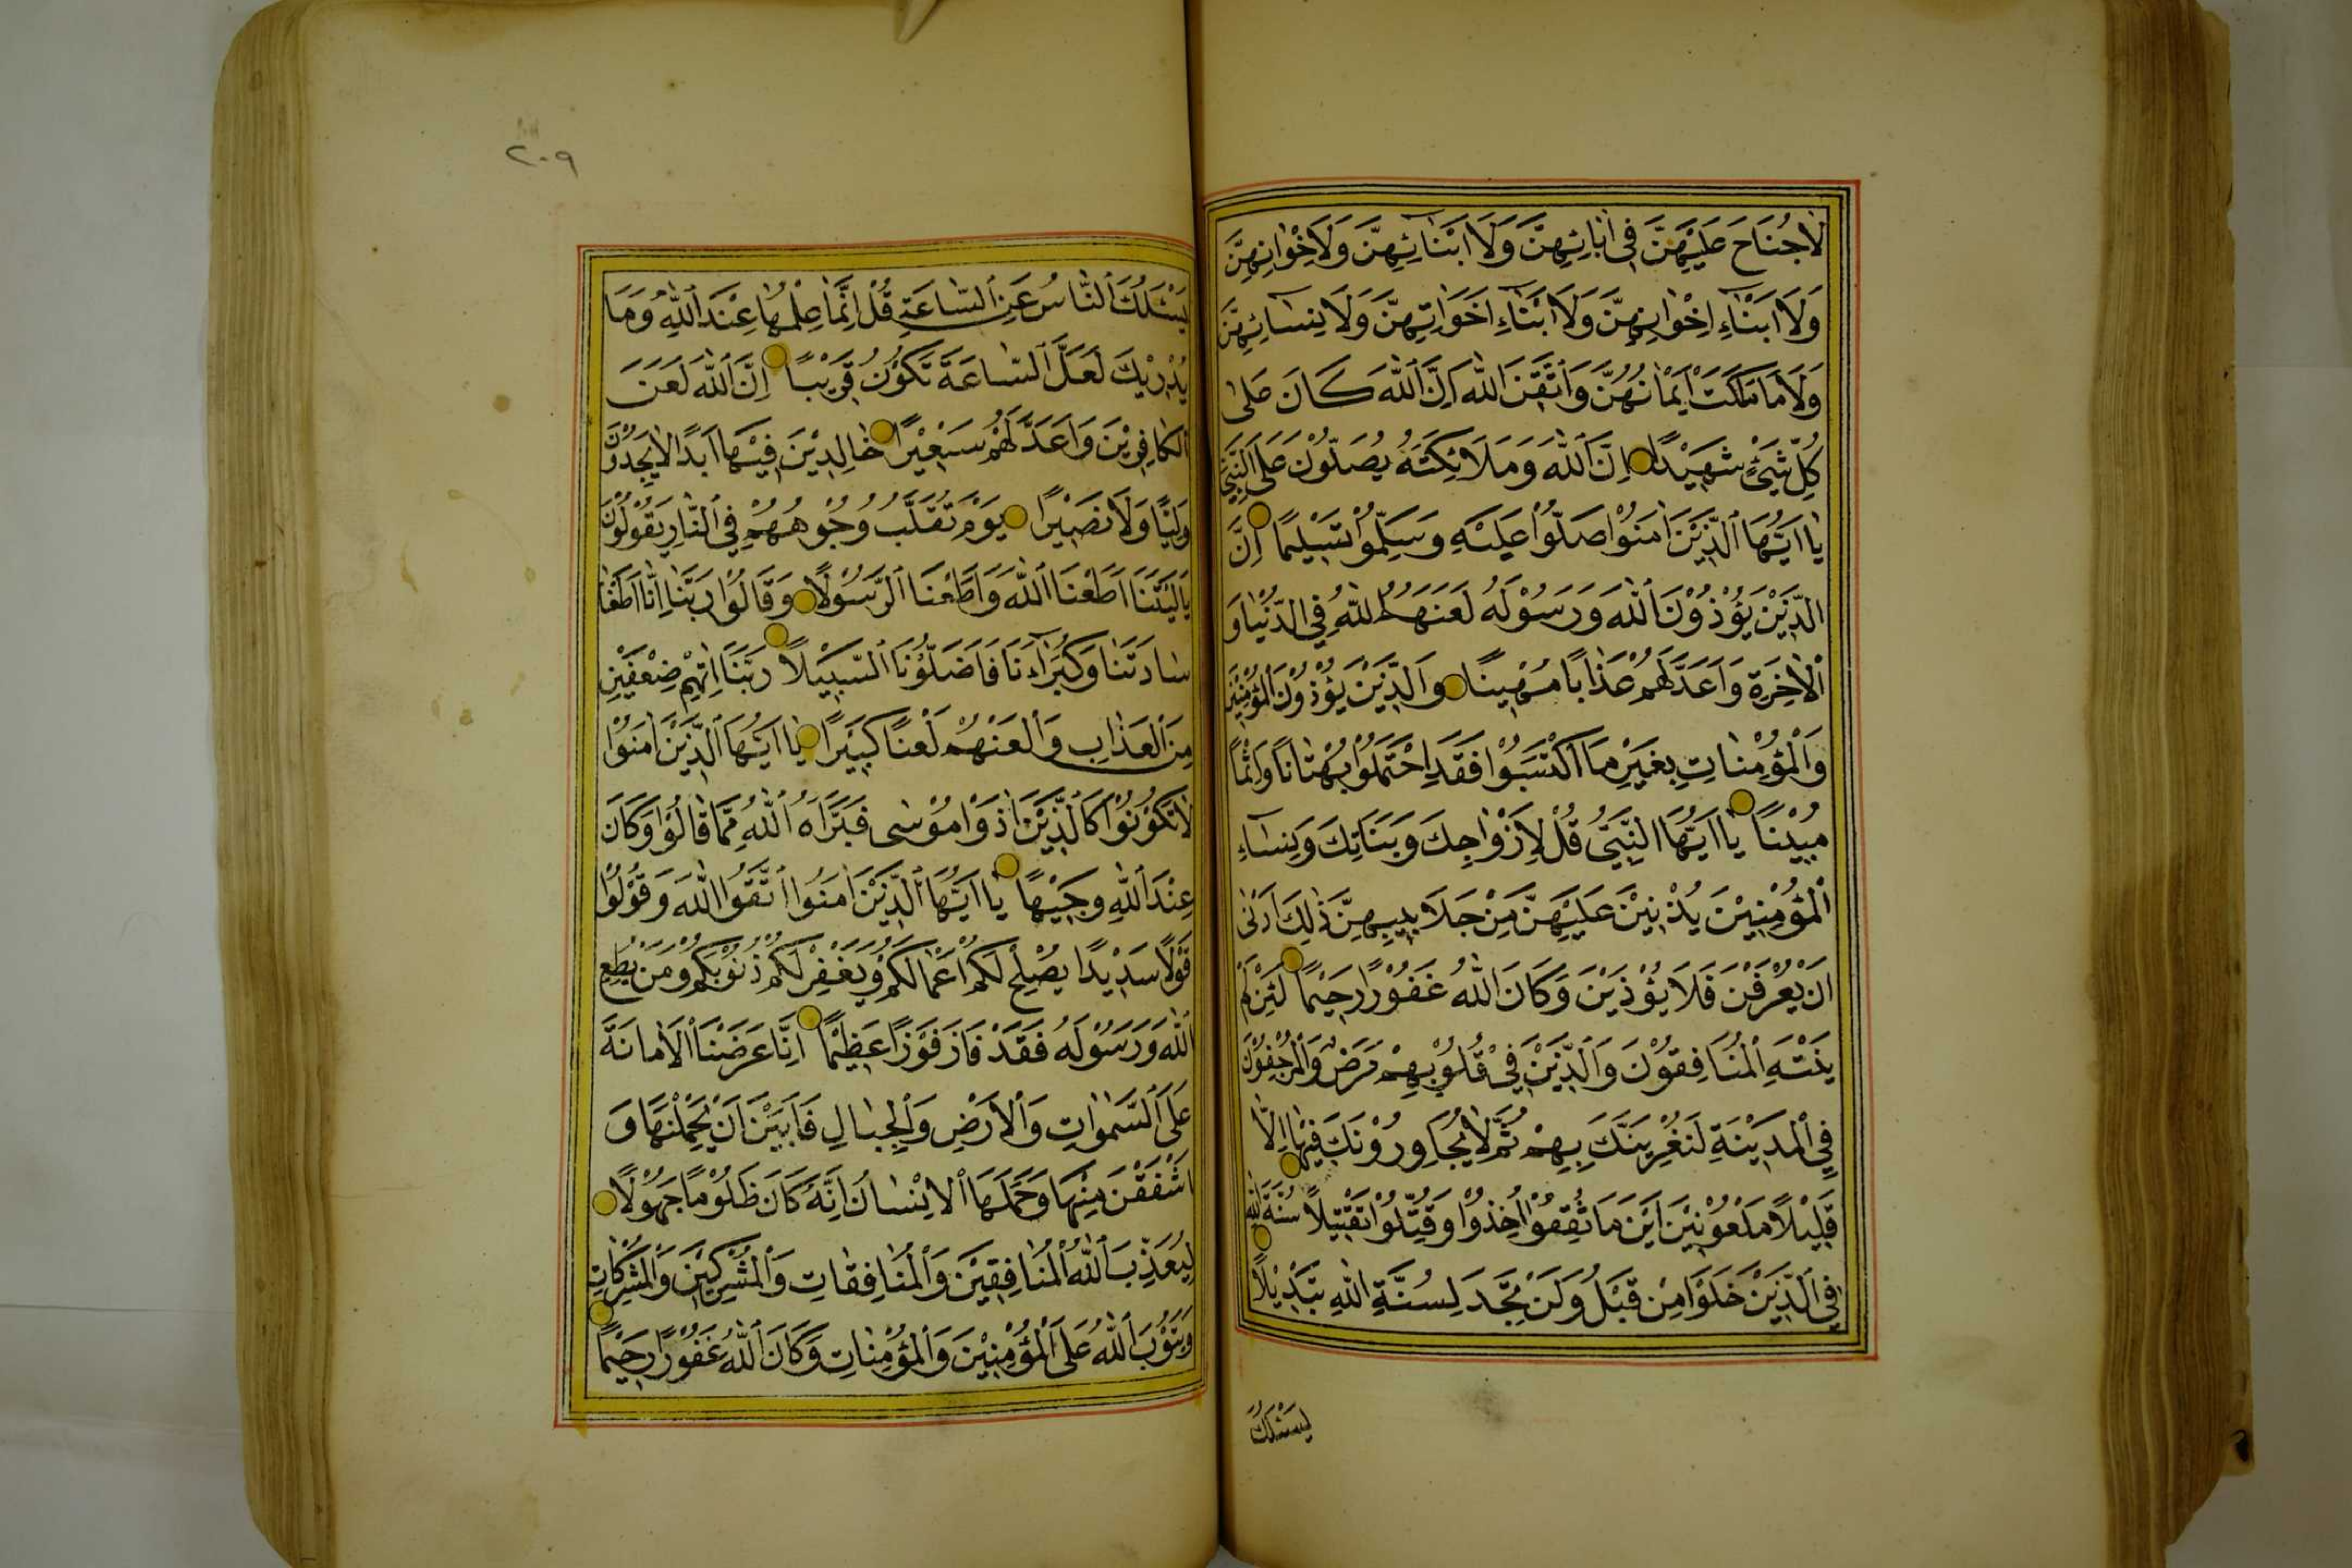 لَاجُنَاحَ عَلَيْهِنَّ فِى اٰبَائِهِنَّ وَلَا اَبْنَائِهِنَّ وَلَا اِخْوَانِهِنَّ
وَلَا اَبْنَاءِ اِخْوَانِهِنَّ وَلَا اَبْنَاءِ اَخَوَاتِهِنَّ وَلَا نِسَائِهِنَّ
وَلَا مَا مَلَكَتْ اَيْمَانُهُنَّ وَاتَّقِينَ اللهَ اِنَّ اللهَ كَانَ عَلٰى
كُلِّ شَيْءٍ شَهِيْدًا اِنَّ اللهَ وَمَلَائِكَتَهُ يُصَلُّوْنَ عَلَى النَّبِيِّ
يَا اَيُّهَا الَّذِيْنَ اٰمَنُوْا صَلُّوْا عَلَيْهِ وَسَلِّمُوْا تَسْلِيْمًا اِنَّ
الَّذِيْنَ يُؤْذُوْنَ اللهَ وَرَسُوْلَهُ لَعَنَهُمُ اللهُ فِي الدُّنْيَا وَ
الْاٰخِرَةِ وَاَعَدَّ لَهُمْ عَذَابًا مُهِيْنًا وَالَّذِيْنَ يُؤْذُوْنَ الْمُؤْمِنِيْنَ
وَالْمُؤْمِنَاتِ بِغَيْرِ مَا اكْتَسَبُوْا فَقَدِ احْتَمَلُوْا بُهْتَانًا وَاِثْمًا
مُبِيْنًا يَا اَيُّهَا النَّبِيُّ قُلْ لِاَزْوَاجِكَ وَبَنَاتِكَ وَنِسَاءِ
الْمُؤْمِنِيْنَ يُدْنِيْنَ عَلَيْهِنَّ مِنْ جَلَابِيْبِهِنَّ ذٰلِكَ اَدْنٰى
اَنْ يُعْرَفْنَ فَلَا يُؤْذَيْنَ وَكَانَ اللهُ غَفُوْرًا رَحِيْمًا لَئِنْ لَمْ
يَنْتَهِ الْمُنَافِقُوْنَ وَالَّذِيْنَ فِيْ قُلُوْبِهِمْ مَرَضٌ وَالْمُرْجِفُوْنَ
فِي الْمَدِيْنَةِ لَنُغْرِيَنَّكَ بِهِمْ ثُمَّ لَا يُجَاوِرُوْنَكَ فِيْهَا اِلَّا
قَلِيْلًا مَلْعُوْنِيْنَ اَيْنَ مَا ثُقِفُوْا اُخِذُوْا وَقُتِّلُوْا تَقْتِيْلًا سُنَّةَ اللهِ
فِي الَّذِيْنَ خَلَوْا مِنْ قَبْلُ وَلَنْ تَجِدَ لِسُنَّةِ اللهِ تَبْدِيْلًا
يَسْئَلُكَ
٢٠٩
يَسْئَلُكَ النَّاسُ عَنِ السَّاعَةِ قُلْ اِنَّمَا عِلْمُهَا عِنْدَ اللهِ وَمَا
يُدْرِيْكَ لَعَلَّ السَّاعَةَ تَكُوْنُ قَرِيْبًا اِنَّ اللهَ لَعَنَ
الْكَافِرِيْنَ وَاَعَدَّ لَهُمْ سَعِيْرًا خَالِدِيْنَ فِيْهَا اَبَدًا لَا يَجِدُوْنَ
وَلِيًّا وَلَا نَصِيْرًا يَوْمَ تُقَلَّبُ وُجُوْهُهُمْ فِي النَّارِ يَقُوْلُوْنَ
يَا لَيْتَنَا اَطَعْنَا اللهَ وَاَطَعْنَا الرَّسُوْلَا وَقَالُوْا رَبَّنَا اِنَّا اَطَعْنَا
سَادَتَنَا وَكُبَرَاءَنَا فَاَضَلُّوْنَا السَّبِيْلَا رَبَّنَا اٰتِهِمْ ضِعْفَيْنِ
مِنَ الْعَذَابِ وَالْعَنْهُمْ لَعْنًا كَبِيْرًا يَا اَيُّهَا الَّذِيْنَ اٰمَنُوْا
لَا تَكُوْنُوْا كَالَّذِيْنَ اٰذَوْا مُوْسٰى فَبَرَّاَهُ اللهُ مِمَّا قَالُوْا وَكَانَ
عِنْدَ اللهِ وَجِيْهًا يَا اَيُّهَا الَّذِيْنَ اٰمَنُوا اتَّقُوا اللهَ وَقُوْلُوْا
قَوْلًا سَدِيْدًا يُصْلِحْ لَكُمْ اَعْمَالَكُمْ وَيَغْفِرْ لَكُمْ ذُنُوْبَكُمْ وَمَنْ يُطِعِ
اللهَ وَرَسُوْلَهُ فَقَدْ فَازَ فَوْزًا عَظِيْمًا اِنَّا عَرَضْنَا الْاَمَانَةَ
عَلَى السَّمٰوَاتِ وَالْاَرْضِ وَالْجِبَالِ فَاَبَيْنَ اَنْ يَحْمِلْنَهَا وَ
اَشْفَقْنَ مِنْهَا وَحَمَلَهَا الْاِنْسَانُ اِنَّهُ كَانَ ظَلُوْمًا جَهُوْلًا
لِيُعَذِّبَ اللهُ الْمُنَافِقِيْنَ وَالْمُنَافِقَاتِ وَالْمُشْرِكِيْنَ وَالْمُشْرِكَاتِ
وَيَتُوْبَ اللهُ عَلَى الْمُؤْمِنِيْنَ وَالْمُؤْمِنَاتِ وَكَانَ اللهُ غَفُوْرًا رَحِيْمًا